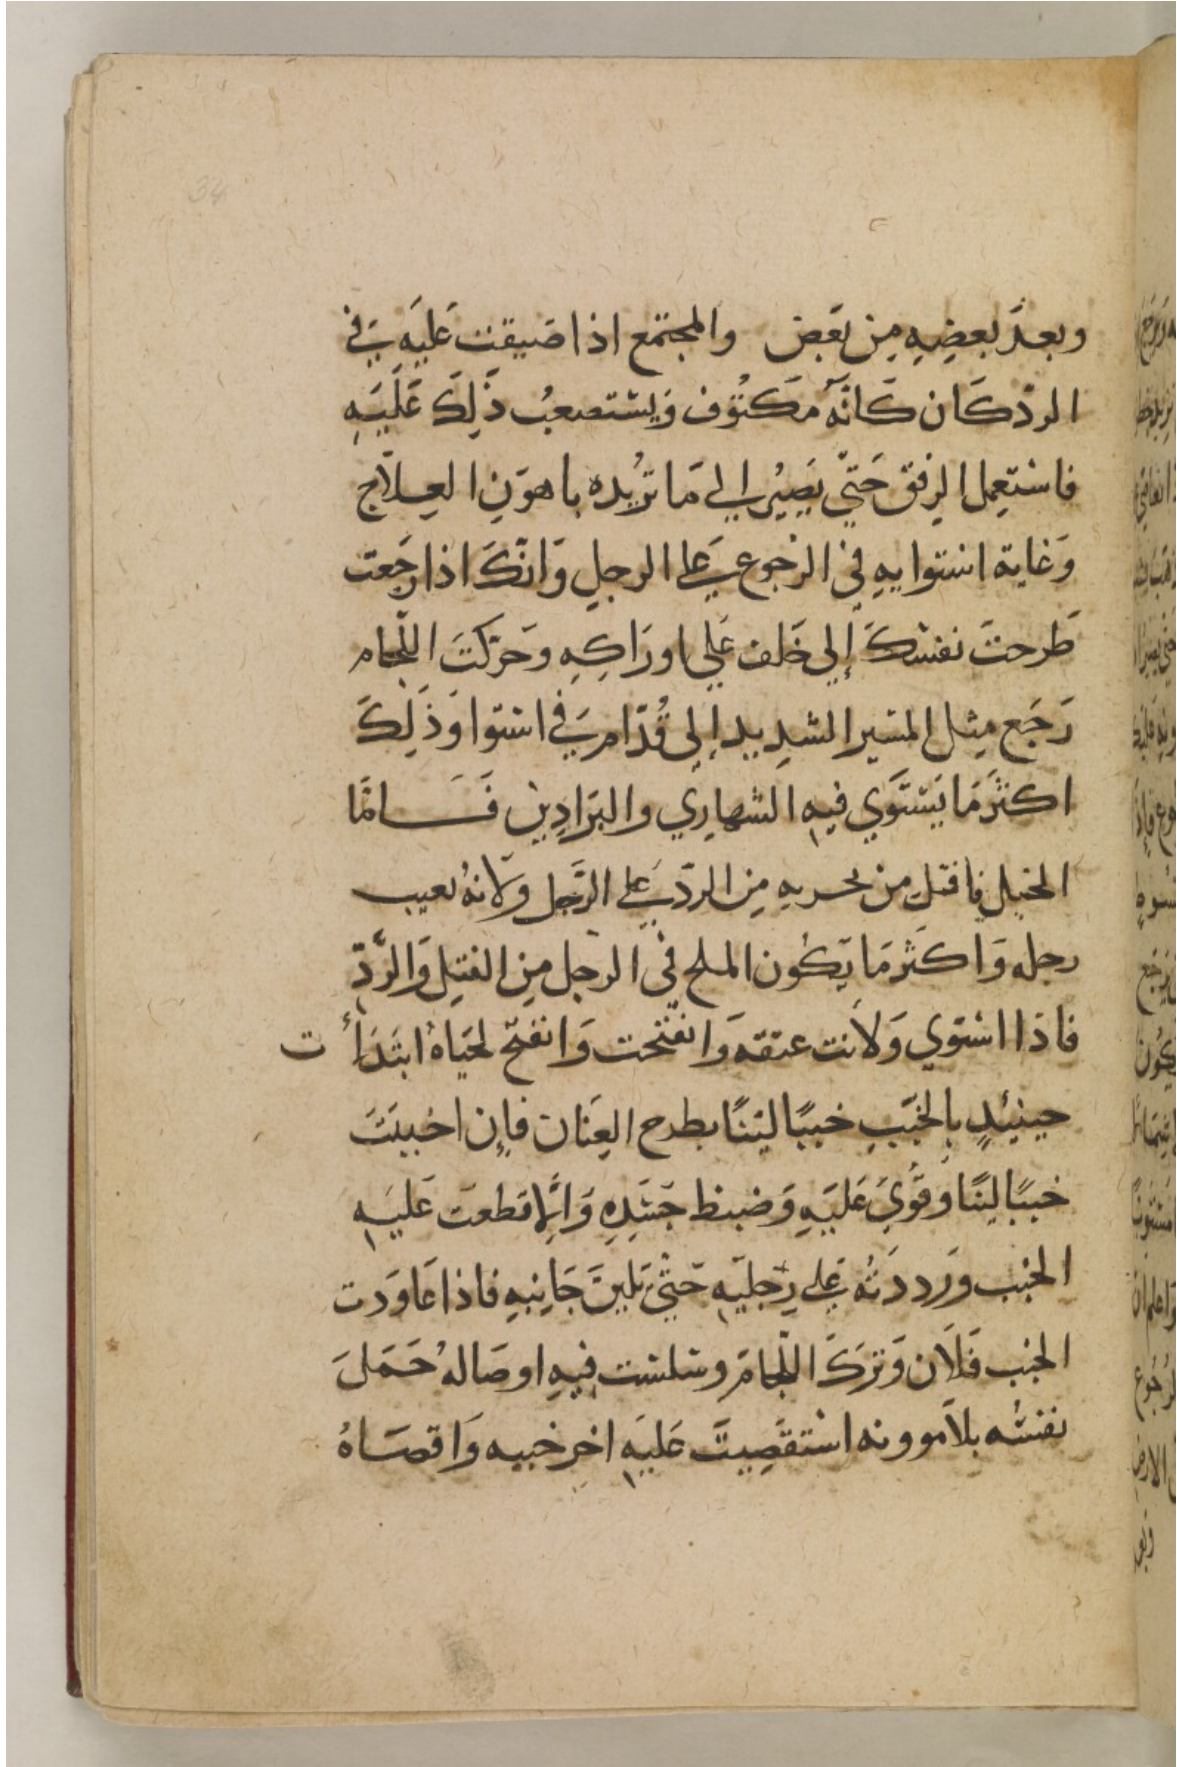 34
وبعدَ بعضِهِ مِن بَعَض والمجتمع اذا ضيقت عَليَه في
الردّ كَان كَانّهُ مَكتُوف وَيستصعبُ ذَلِكَ عَلَيَهِ
فاستَعِمل الرِفق حَتّي يَصِيُر الي مَا تُريده باهوَنِ العِلَاج
وَغاية استوايهِ فِي الرُجوع عَلي الرجلِ وَانّكَ اذا رَجَعت
طَرحتَ نفسَكَ إلي خَلف عَلي اورَاكِهِ وَحَرّكتَ اللّجام
رَجَع مِثل المسَير الشدِيد إلي قُدّام في استوا وَذَلِكَ
اكثَر مَا يَستَوي فيهِ الشهارِي والبَرَادِين فَاَمّا
الخيل فا قتل من بحريه مِن الردّ عَلي الرَّجل وَلانهُ يعيب
رجله وَاكثَر مَا يَكُون الملح فِي الرجل مِن الفتِل وَالرَّدِّ
فاذَا استَوي وَلَانت عنقه وَانفتحت وَانفتَح لحيَاهُ ابتَدَأت
حينئِدٍ بِالخَبَبِ خببًا ليّنًا بطرح العِنَان فإن اخببَتَ
خببًا ليّنًا وَقَوِيَ عَليَهِ وَضبط جَسَدِهِ وَاِلَّا قطعت عَليَهِ
الخبب ورَددَتُه عَلي رِجليَهِ حَتّيَ يَلينَ جَانِبهِ فاذا عَاوَدت
الخبب فَلَان وَتَركَ اللّجَامَ وسَلست فيهِ اوصَالهُ حَمَل
نفسُه بلا موونه استَقصَيتَ عَليَهِ اخِر خببه وَاقصَاهُ